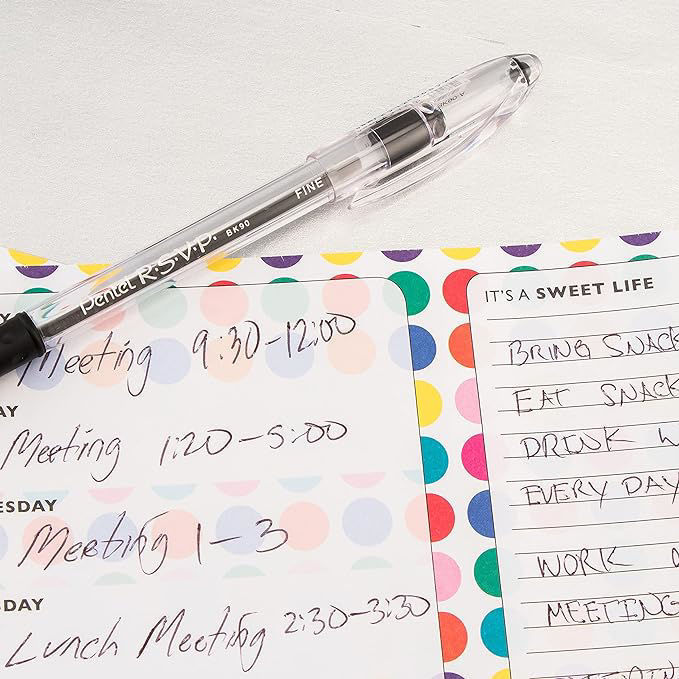 Pentel R.S.V.P. BK90 FINE
Meeting 9:30-12:00
AY
Meeting 1:20-5:00
ESDAY
Meeting 1-3
SDAY
Lunch Meeting 2:30-3:30
IT'S A SWEET LIFE
BRING SNACK
EAT SNACK
DRINK W
EVERY DAY
WORK
MEETING